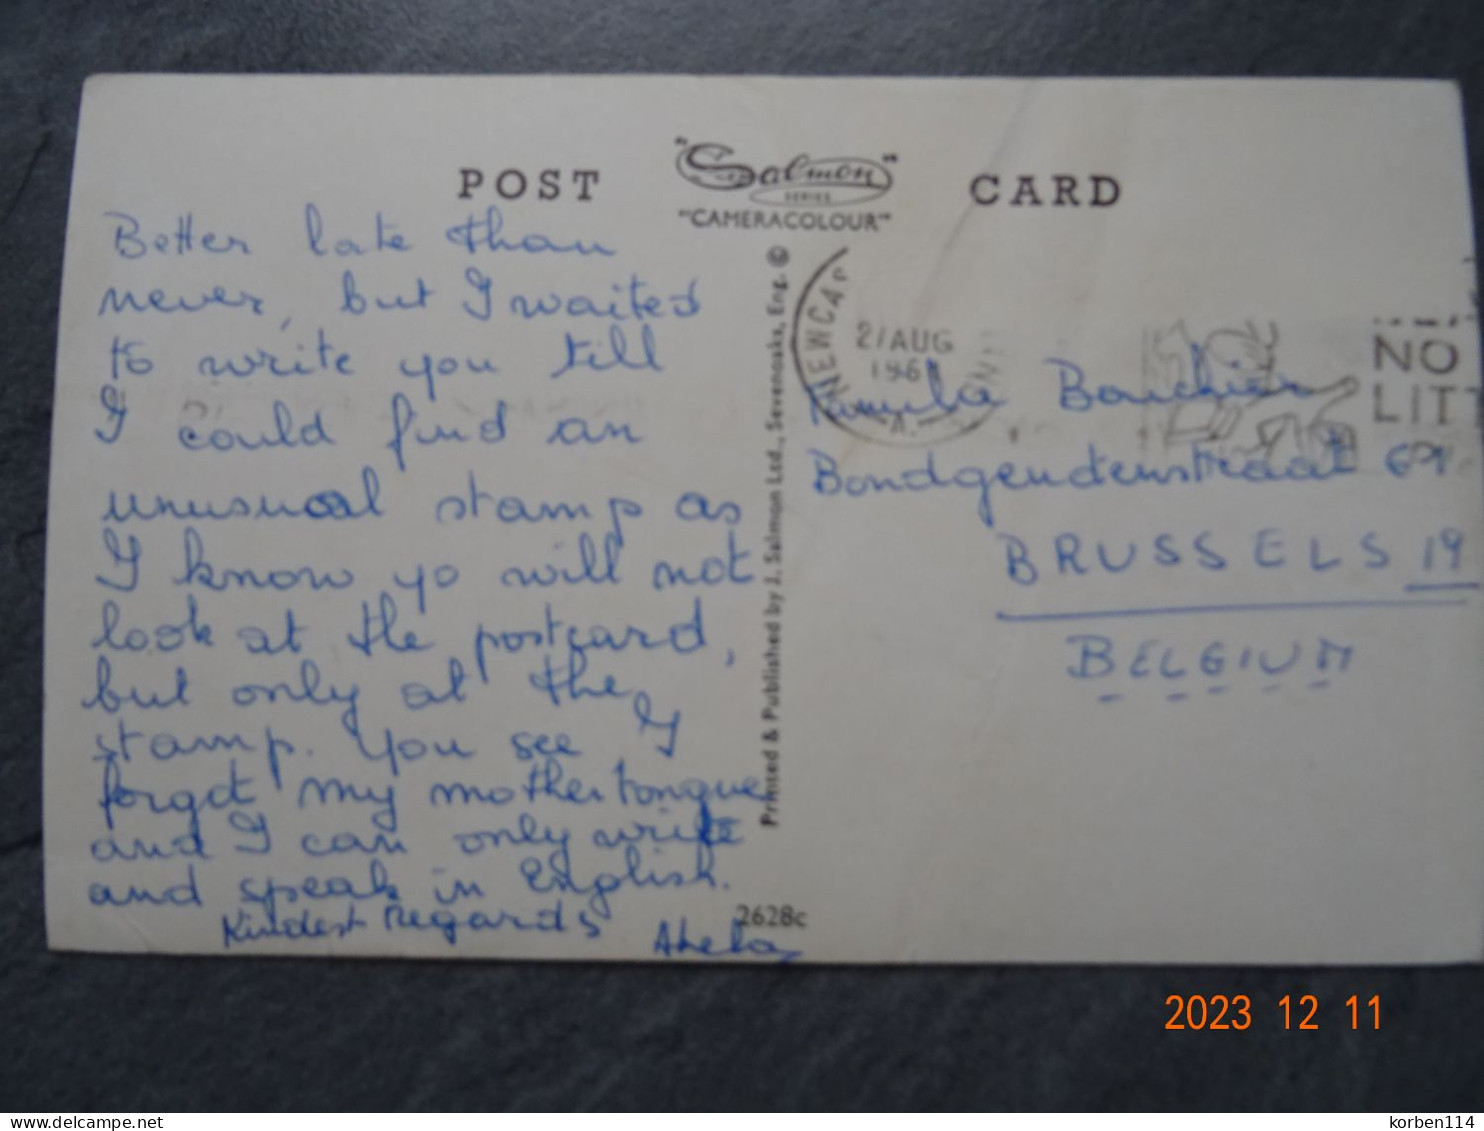 POST CARD
"Salmon"
SERIES
"CAMERACOLOUR"
Better late than
never, but I waited
to write you till
I could find an
unusual stamp as
I know yo will not
look at the postcard,
but only at the
stamp. You see I
forget my mothertongue
and I can only write
and speak in English.
Kindest Regards
Printed & Published by J. Salmon Ltd., Sevenoaks, Eng. ©
2628c
21 AUG
NO
LIT
Bouchier
Bondgendenstraat 61
BRUSSELS 19
BELGIUM
2023 12 11
korben114